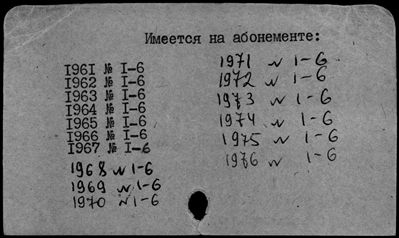 Имеется на абонементе:
I96I № I-6
I962 № I-6
I963 № I-6
I964 № I-6
I965 № I-6
I966 № I-6
I967 № I-6
1968 N 1-6
1969 N 1-6
1970 N 1-6
1971 N 1-6
1972 N 1-6
1973 N 1-6
1974 N 1-6
1975 N 1-6
1976 N 1-6